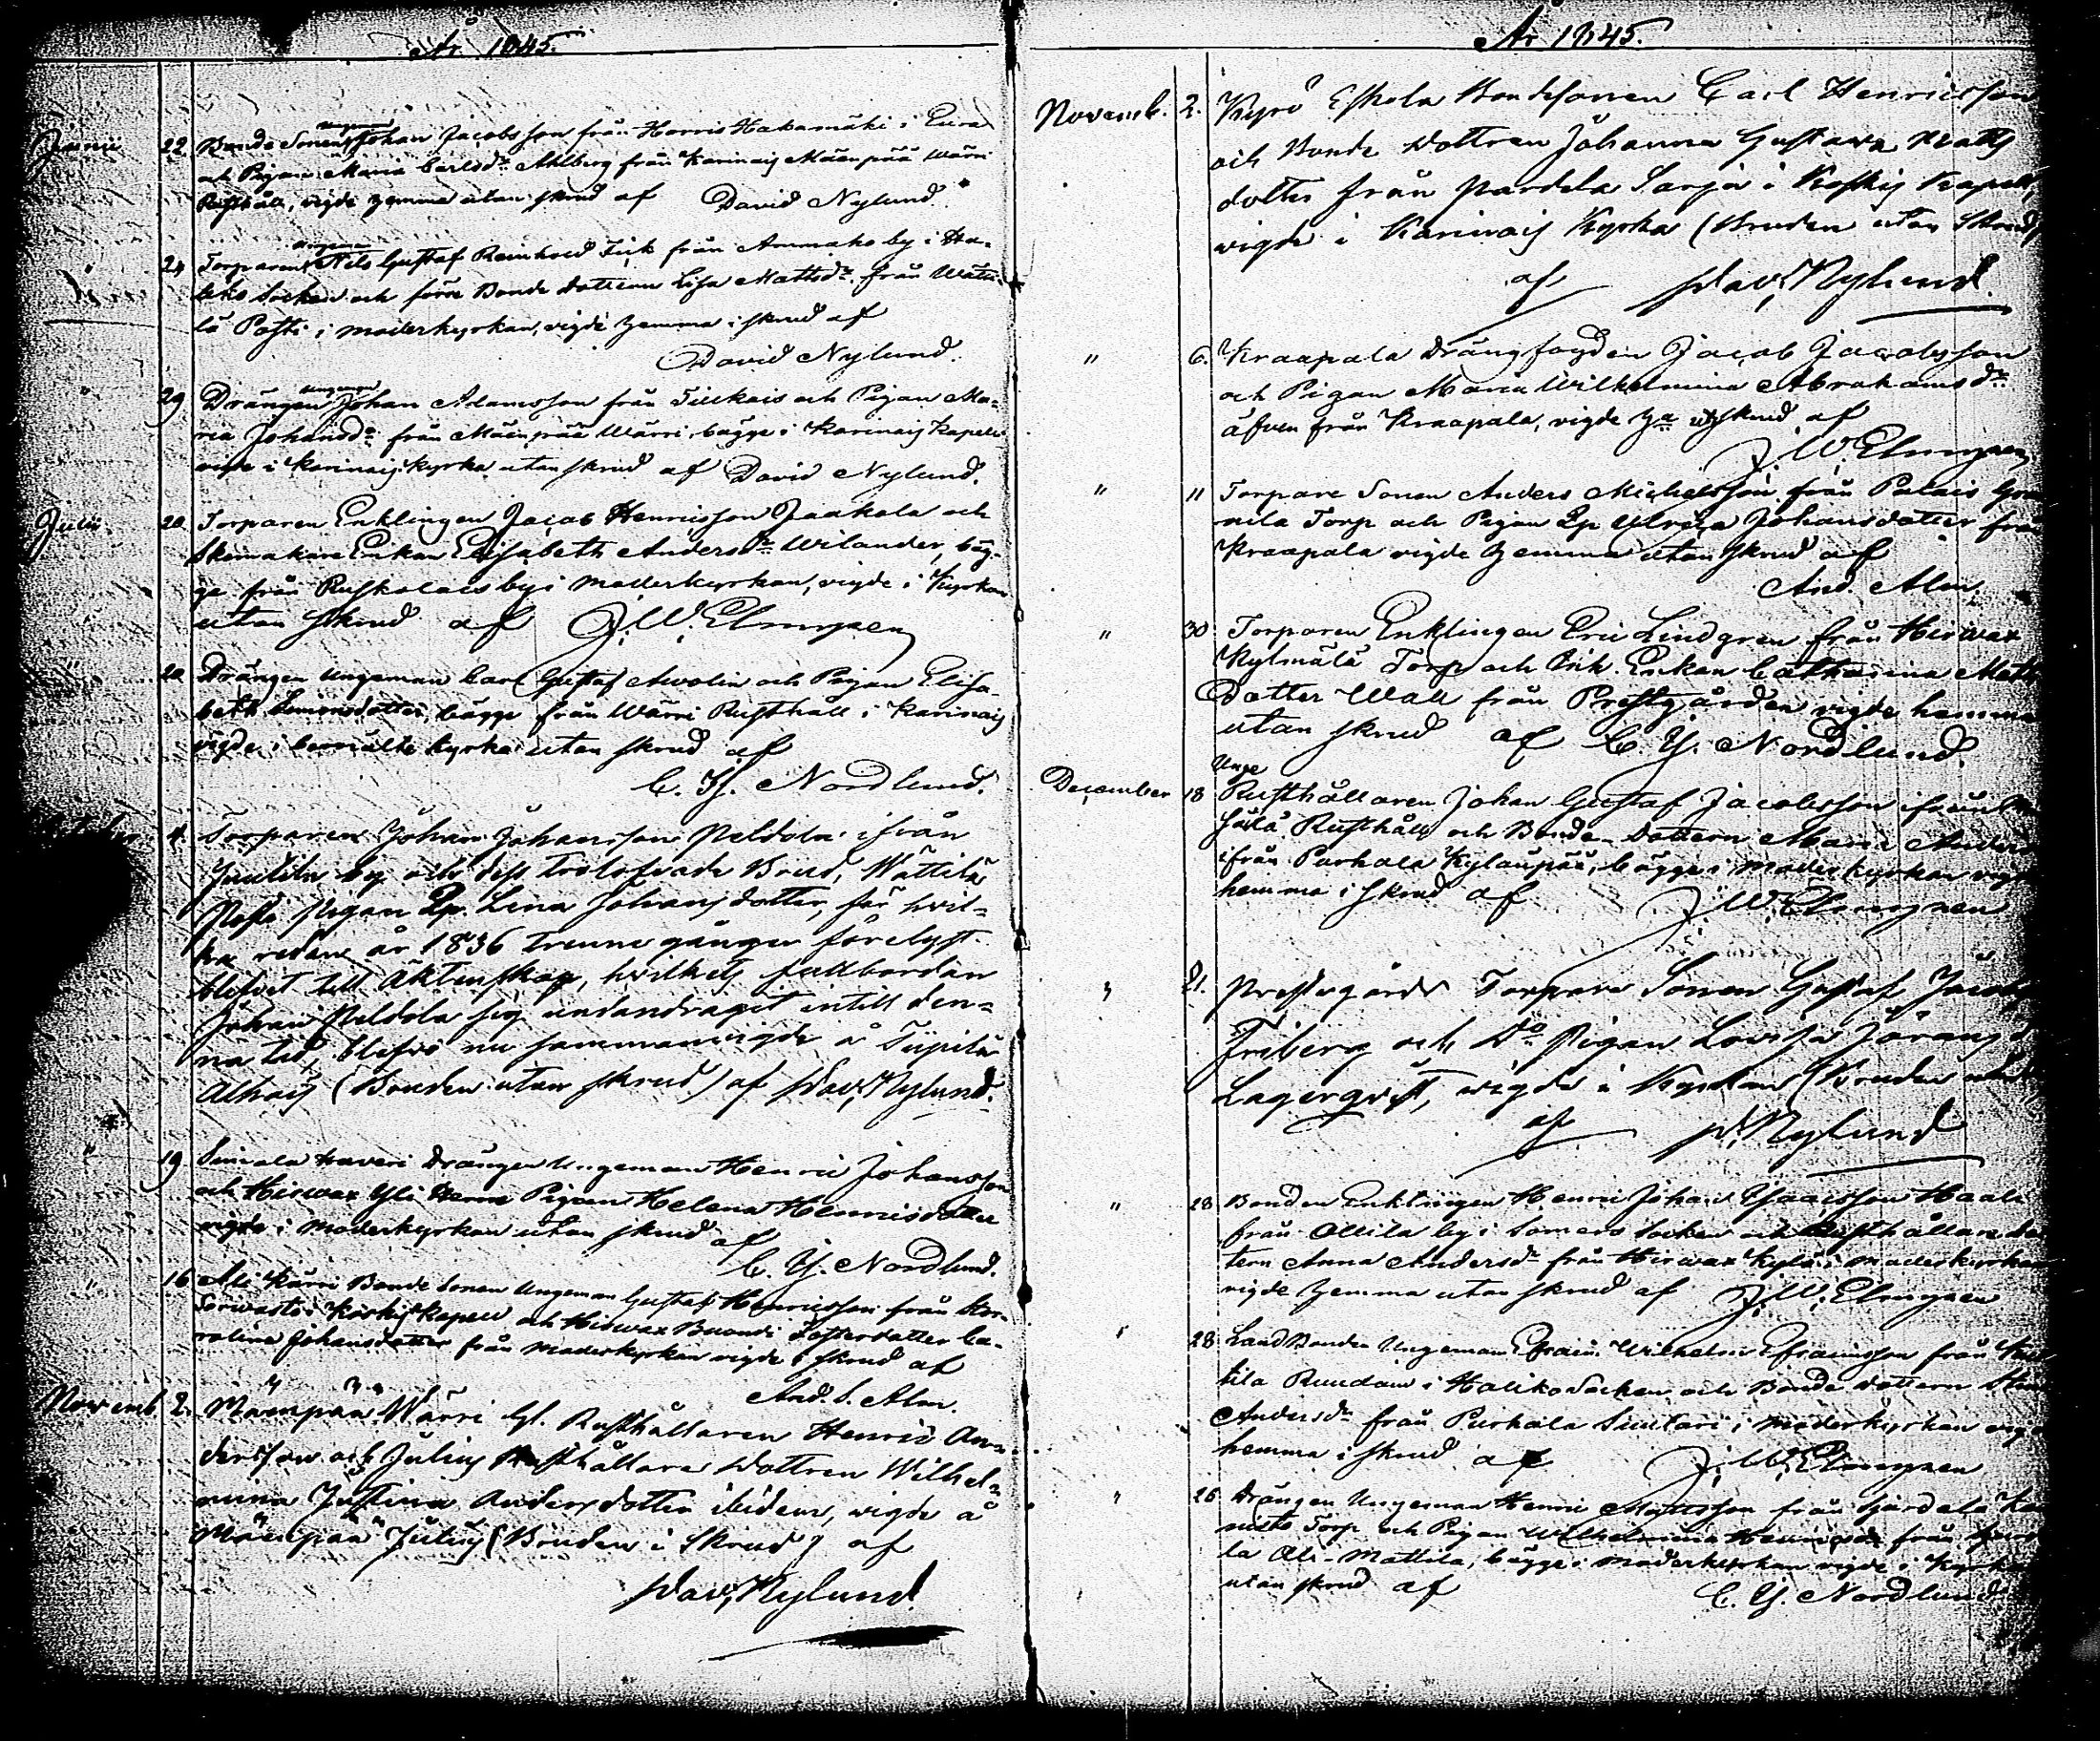 År 1845.
Junii 22. Bonde Sonen ungman Johan Jacobsson från Horris Hakamäki i Eura
och Pigan Maria Carlsdr Ahlberg från Karinais Mäenpää Wärri
Rusthåll, vigde hemma utan skrud af David Nylund.
" 24 Torparen ungman Nils Gustaf Reinhold Fick från Ammaho by i
socken och förre Bonde dottren Lisa Mattsdr från Wätti-
lä Posti i moderkyrkan, vigde hemma i skrud af
David Nylund.
" 29 Drängen ungman Johan Adamsson från Tiukais och Pigan Ma-
ria Johansdr från Mäenpää Wärri, bägge i Karinais Kapell
vigde i Karinais kyrka utan skrud af David Nylund.
Julii 20. Torparen Enklingen Jacob Henricsson Jaakola och
Skomakare Enkan Elisabeth Andersdr Wilander, bäg-
ge från Ruskolais by i moderkyrkan, vigde i Kyrkan
utan skrud af J. W. Elmgren
" 20 Drängen Ungeman Carl Gustaf Awolin och Pigan Elisa-
beth Simonsdotter, bägge från Wärri Rusthåll i Karinais
vigde i bemälte kyrka utan skrud af
C. Y. Nordlund.
4. Torparen Johan Johansson Peldola ifrån
Juutila by och dess trolofvade Brud, Wättilä
Posti Pigan Lena Johansdotter, för hvil-
ka redan år 1836 trenne gånger förelyst
blifvit till Äktenskap, hvilkets fullbordan
Johan Peldola sig undandragit intill den-
na tid, blefvo nu sammanvigde å Tiipilä
Alhais (Bruden utan skrud) af Dav. Nylund.
" 19 Suirala Haveri Drängen Ungeman Henric Johansson
och Hirwax Yli Pigan Helena Henricsdotter
vigde i moderkyrkan utan skrud af
C. Y. Nordlund.
" 16 Ali Kärri Bonde Sonen Ungeman Gustaf Henricsson från
i Koskis Kapell och Hirwax Buandi Fosterdotter Ca-
rolina Johansdotter från moderkyrkan vigde i skrud af
And. S. Alm.
Novemb 2. Mäenpää Wärri Gl. Rusthållaren Henric An-
dersson och Julius Rusthållare Dottren Wilhel-
mina Justina Andersdotter ibidem, vigde å
Mäenpää Julius (Bruden i Skrud) af
Dav. Nylund.
År 1845.
Novemb. 2. Kyrö Eskola Bondesonen Carl Henricsson
och Bonde Dottren Johanna Gustava Matts
dotter från Pardela Sarja i Koskis Kapell,
vigde i Karinais Kyrka (Bruden utan Skrud)
af Dav. Nylund.
" 6. Kraapala Drängfogden Jacob Jacobsson
och Pigan Maria Wilhelmina Abrahamsdr
äfven från Kraapala, vigde utan skrud af
J. W. Elmgren
" 11 Torpare Sonen Anders Michelsson från Palais
Torp och Pigan Ulrica Johansdotter från
Kraapala vigde hemma utan skrud af
And. Alm.
" 30 Torparen Enklingen Eric Lindgren från Hirwax
Kylmälä Torp och Enkan Catharina Matts
Dotter Wall från Prestgården vigde hemma
utan skrud af C. Y. Nordlund.
December 18 Unge Rusthållaren Johan Gustaf Jacobsson ifrån
Rusthåll och Bonde-Dottern Maria Anders
ifrån Parhala Kylänpää, bägge i moderkyrkan vigde
hemma i skrud af J. W. Elmgren
" 21. Prestegårds Torpare Sonen Gustaf Jacobs
Friberg och Do Pigan Lovisa Jörans
Lagerqvist, vigde i Kyrkan (Bruden utan
af D. Nylund
" 28 Bonden Enklingen Henric Johan Isacsson
från Ollila by i Somero Socken och Rusthållare dot
tern Anna Andersdr från Hirwax Kylä i moderkyrkan
vigde hemma utan skrud af J. W. Elmgren
" 28 Landbonden Ungeman Efraim Wilhelm Efraimsson från
tila i Haliko Socken och Bonde dottern
Andersdr från Purhala Suutari i moderkyrkan vigde
hemma i skrud af J. W. Elmgren
" 26 Drängen Ungeman Henric Mattsson från Pardela
Torp och Pigan Wilhelmina Henricsdr från
la Ali-Mattila, bägge i moderkyrkan vigde i Kyrkan
utan skrud af C. Y. Nordlund.